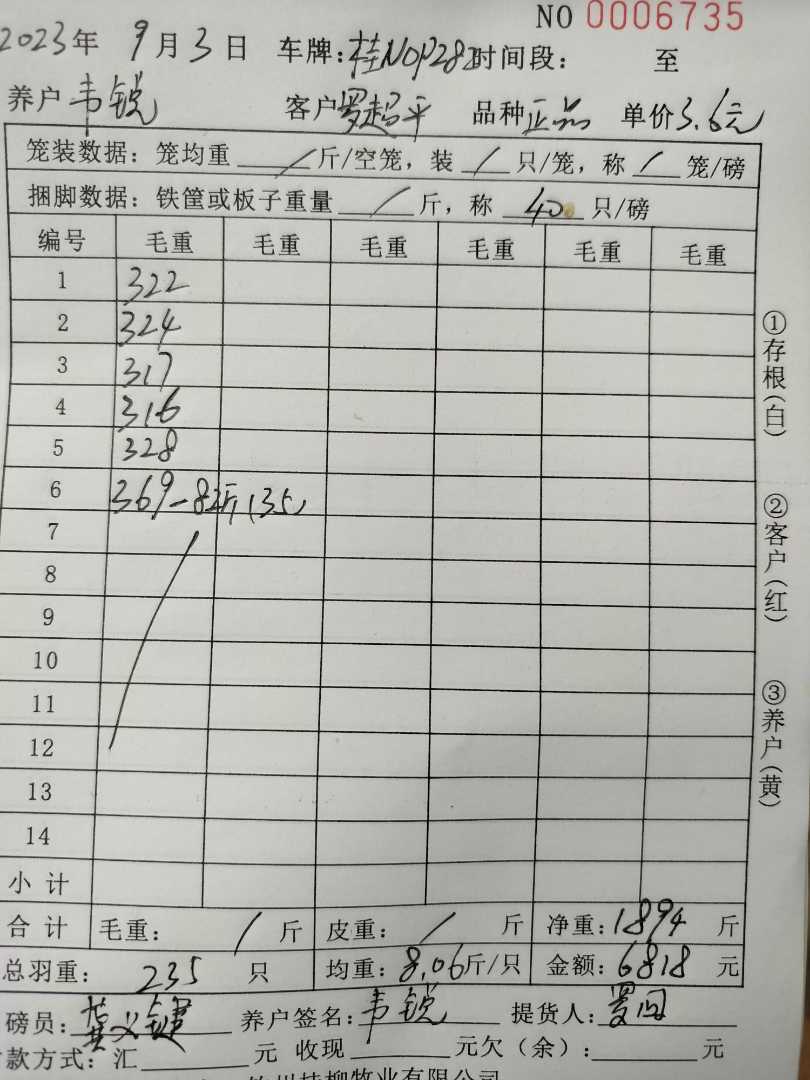 NO 0006735
2023年 9月3日 车牌:桂N0P282 时间段: 至
养户 韦锐 客户 罗超平 品种 正品 单价 3.6元
笼装数据:笼均重 / 斤/空笼,装 / 只/笼,称 / 笼/磅
捆脚数据:铁筐或板子重量 / 斤,称 40 只/磅
编号 毛重 毛重 毛重 毛重 毛重 毛重
1 322
2 324
3 317
4 316
5 328
6 369-82斤(35)
7
8
9
10
11
12
13
14
小计
合计 毛重: / 斤 皮重: / 斤 净重:1894 斤
总羽重: 235 只 均重:8.06斤/只 金额:6818 元
磅员: 养户签名:韦锐 提货人:
款方式:汇 元 收现 元欠(余): 元
桂柳牧业有限公司
①存根(白)
②客户(红)
③养户(黄)